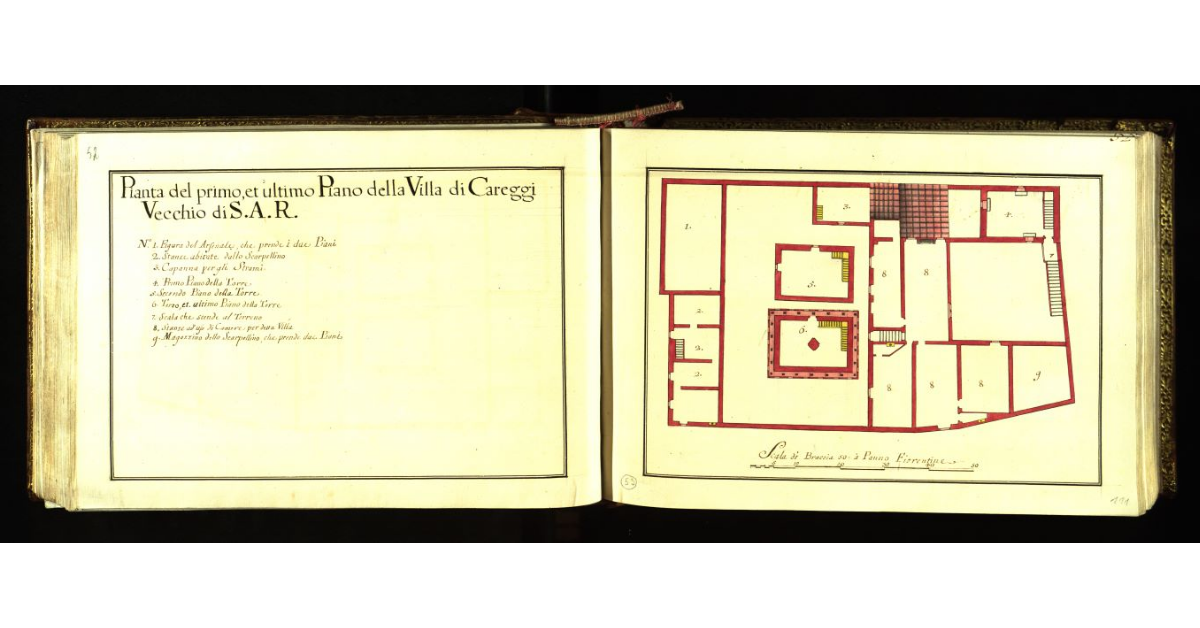 52
Pianta del primo, et ultimo Piano della Villa di Careggi
Vecchio di S.A.R.
Nº 1. Figura del Arsenale, che prende i due Piani
2. Stanze abitate dallo Scarpellino
3. Capanna per gli Strami
4. Primo Piano della Torre
5. Secondo Piano della Torre
6. Terzo, et ultimo Piano della Torre
7. Scala che scende al Terreno
8. Stanze ad uso di Camere, per detta Villa
9. Magazzino dello Scarpellino, che prende due Piani
1.
2.
2.
2.
3.
5.
6.
8
8
4.
7
8
8
8
9
Scala di Braccia 50 à Panno Fiorentine
10
20
30
40
50
52
111